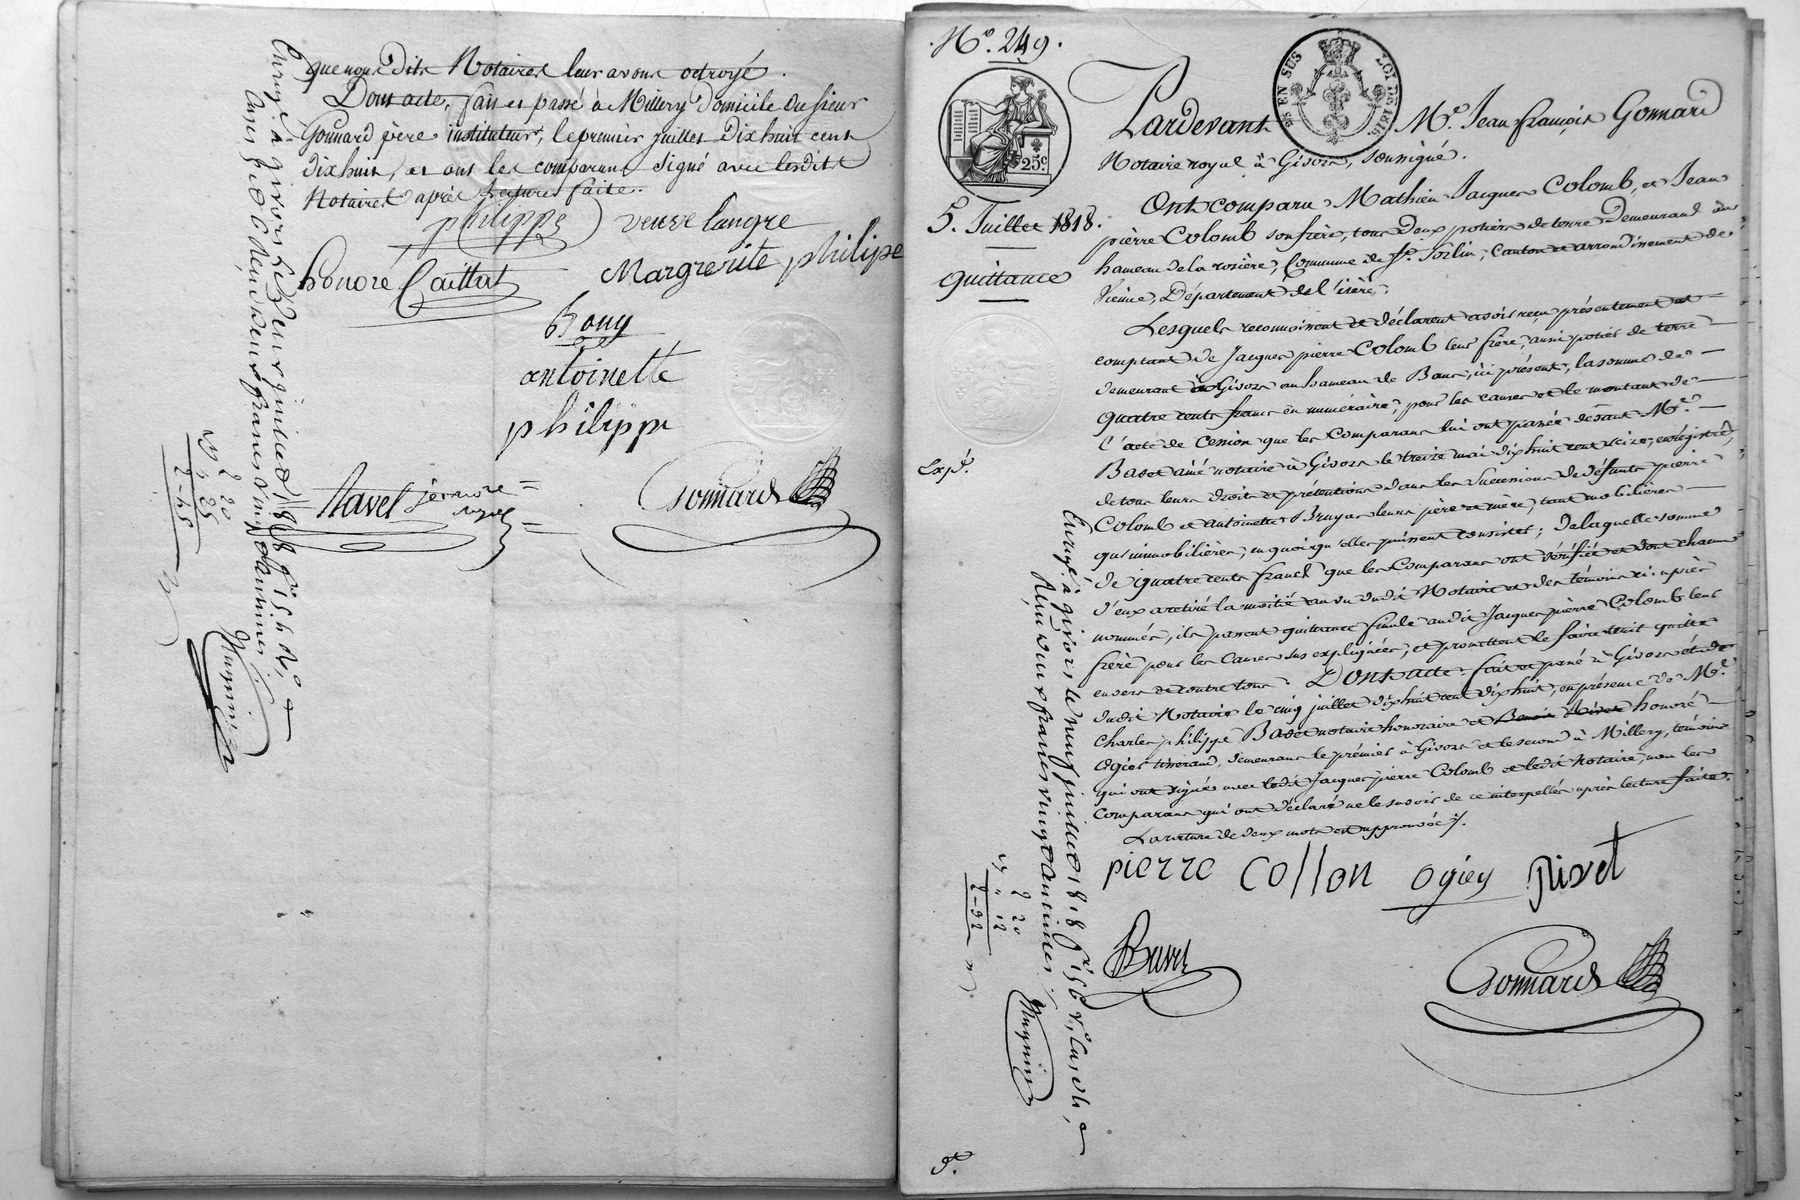 que nous dits Notaires leur avons octroyé.
Dont acte, fait et passé à Millery Domicile du sieur
Gonnard père instituteur, le premier juillet Dix huit cent
dix huit, et ont les comparans Signé avec lesdits
Notaires après Lecture faite.
philippe veuve langre
honoré Caillat Margrerite philipe
Bony
antoinette
philippe
Navel Gonnard
Enregé à givors le neuf juillet 1818 fo
Reçu deux francs vingt centimes
2 20
25
2-45
No. 249.
EN SUS LOI DE 1816
25c.
Pardevant Me. Jean françois Gonnard
Notaire royal à Givors, soussigné.
5. Juillet 1818.
quittance
Ont comparu Mathieu Jacques Colomb, et Jean
pierre Colomb son frère, tous deux potiers de terre demeurant au
hameau de la rosière, Commune de St. Sorlin, Canton et arrondissement de
Vienne, Département de l'isère.
Lesquels reconnoissent et déclarent avoir reçu présentement et
comptant de Jacques pierre Colomb leur frère, aussi potier de terre
demeurant à Givors au hameau de Bans, ici présent, la somme de
quatre cents francs en numéraire, pour les causes et le montant de
l'acte de Cession que les Comparans lui ont passée devant Me.
Badet ainé notaire à Givors le treize mai dix huit cent seize, enregistré,
de tous leurs droits et prétentions dans les Successions de défunts pierre
Colomb et antoinette Bruyas leurs père et mère, tant mobilières
qu'immobilières, en quoi qu'elles puissent consister; de laquelle somme
de quatre cents francs que les Comparans ont vérifiée et dont chacun
d'eux a retiré la moitié au vu dudit Notaire et des témoins ci-après
nommés, ils passent quittance finale audit Jacques pierre Colomb leur
frère pour les Causes sus expliquées, et promettent le faire tenir quitte
envers et contre tous. Dont acte fait et passé à Givors étude
dudit Notaire le cinq juillet dix huit cent dix huit, en présence de Me.
Charles philippe Badet notaire honoraire et honoré
ogier, demeurant le premier à Givors et le second à Millery, témoins
qui ont signé avec ledit Jacques pierre Colomb et ledit Notaire, non les
comparans qui ont déclaré ne le savoir de ce interpellés après lecture faite.
La rature de deux mots est approuvée.
Exp.
pierre collon ogiey
Gonnard
Enregé à givors le neuf juillet 1818 fo
Reçu deux francs vingt centimes
2 20
12